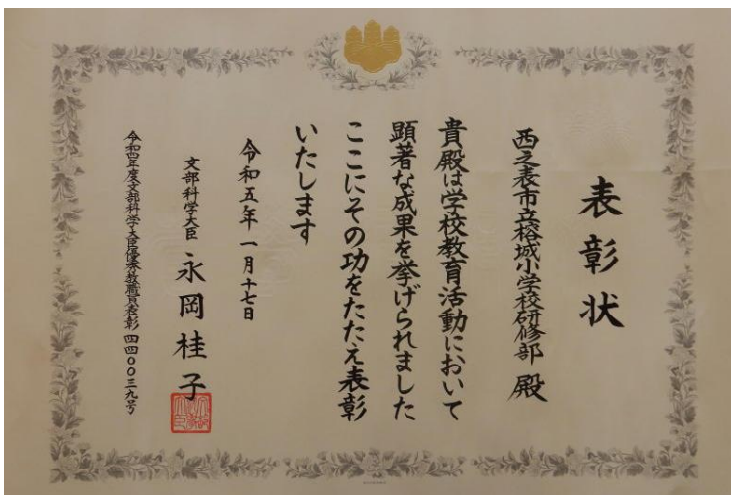 表彰状
西之表市立榕城小学校研修部 殿
貴殿は学校教育活動において
顕著な成果を挙げられました
ここにその功をたたえ表彰
いたします
令和五年一月十七日
文部科学大臣 永岡桂子
令和四年度文部科学大臣優秀教職員表彰 四四〇〇三九号